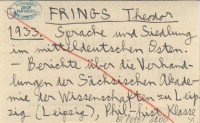 FRINGS Theodor
1933. Sprache und Siedlung
im mitteldeutschen Osten.
– Berichte über die Verhand-
lungen der Sächsischen Akade-
mie der Wissenschaften zu Leip-
zig (Leipzig), Phil. hist. Klasse